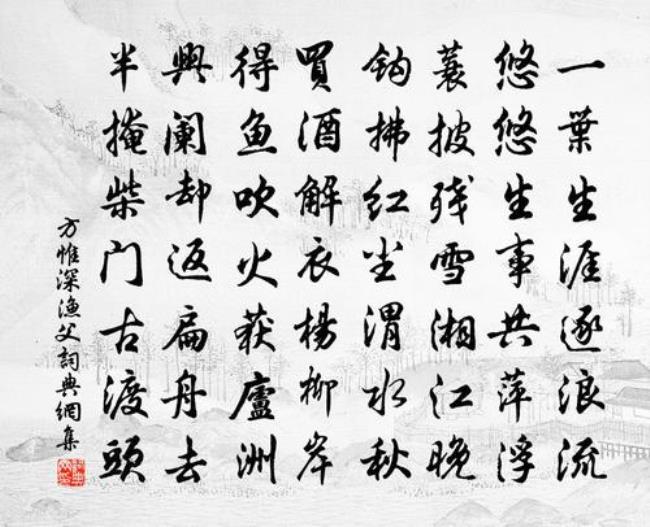 一葉生涯逐浪流
悠悠生事共萍浮
蓑披残雪湘江晚
钩拂红尘渭水秋
買酒解衣楊柳岸
得鱼吹火荻廬洲
興阑却返扁舟去
半掩柴门古渡頭
方惟深漁父詞典網集